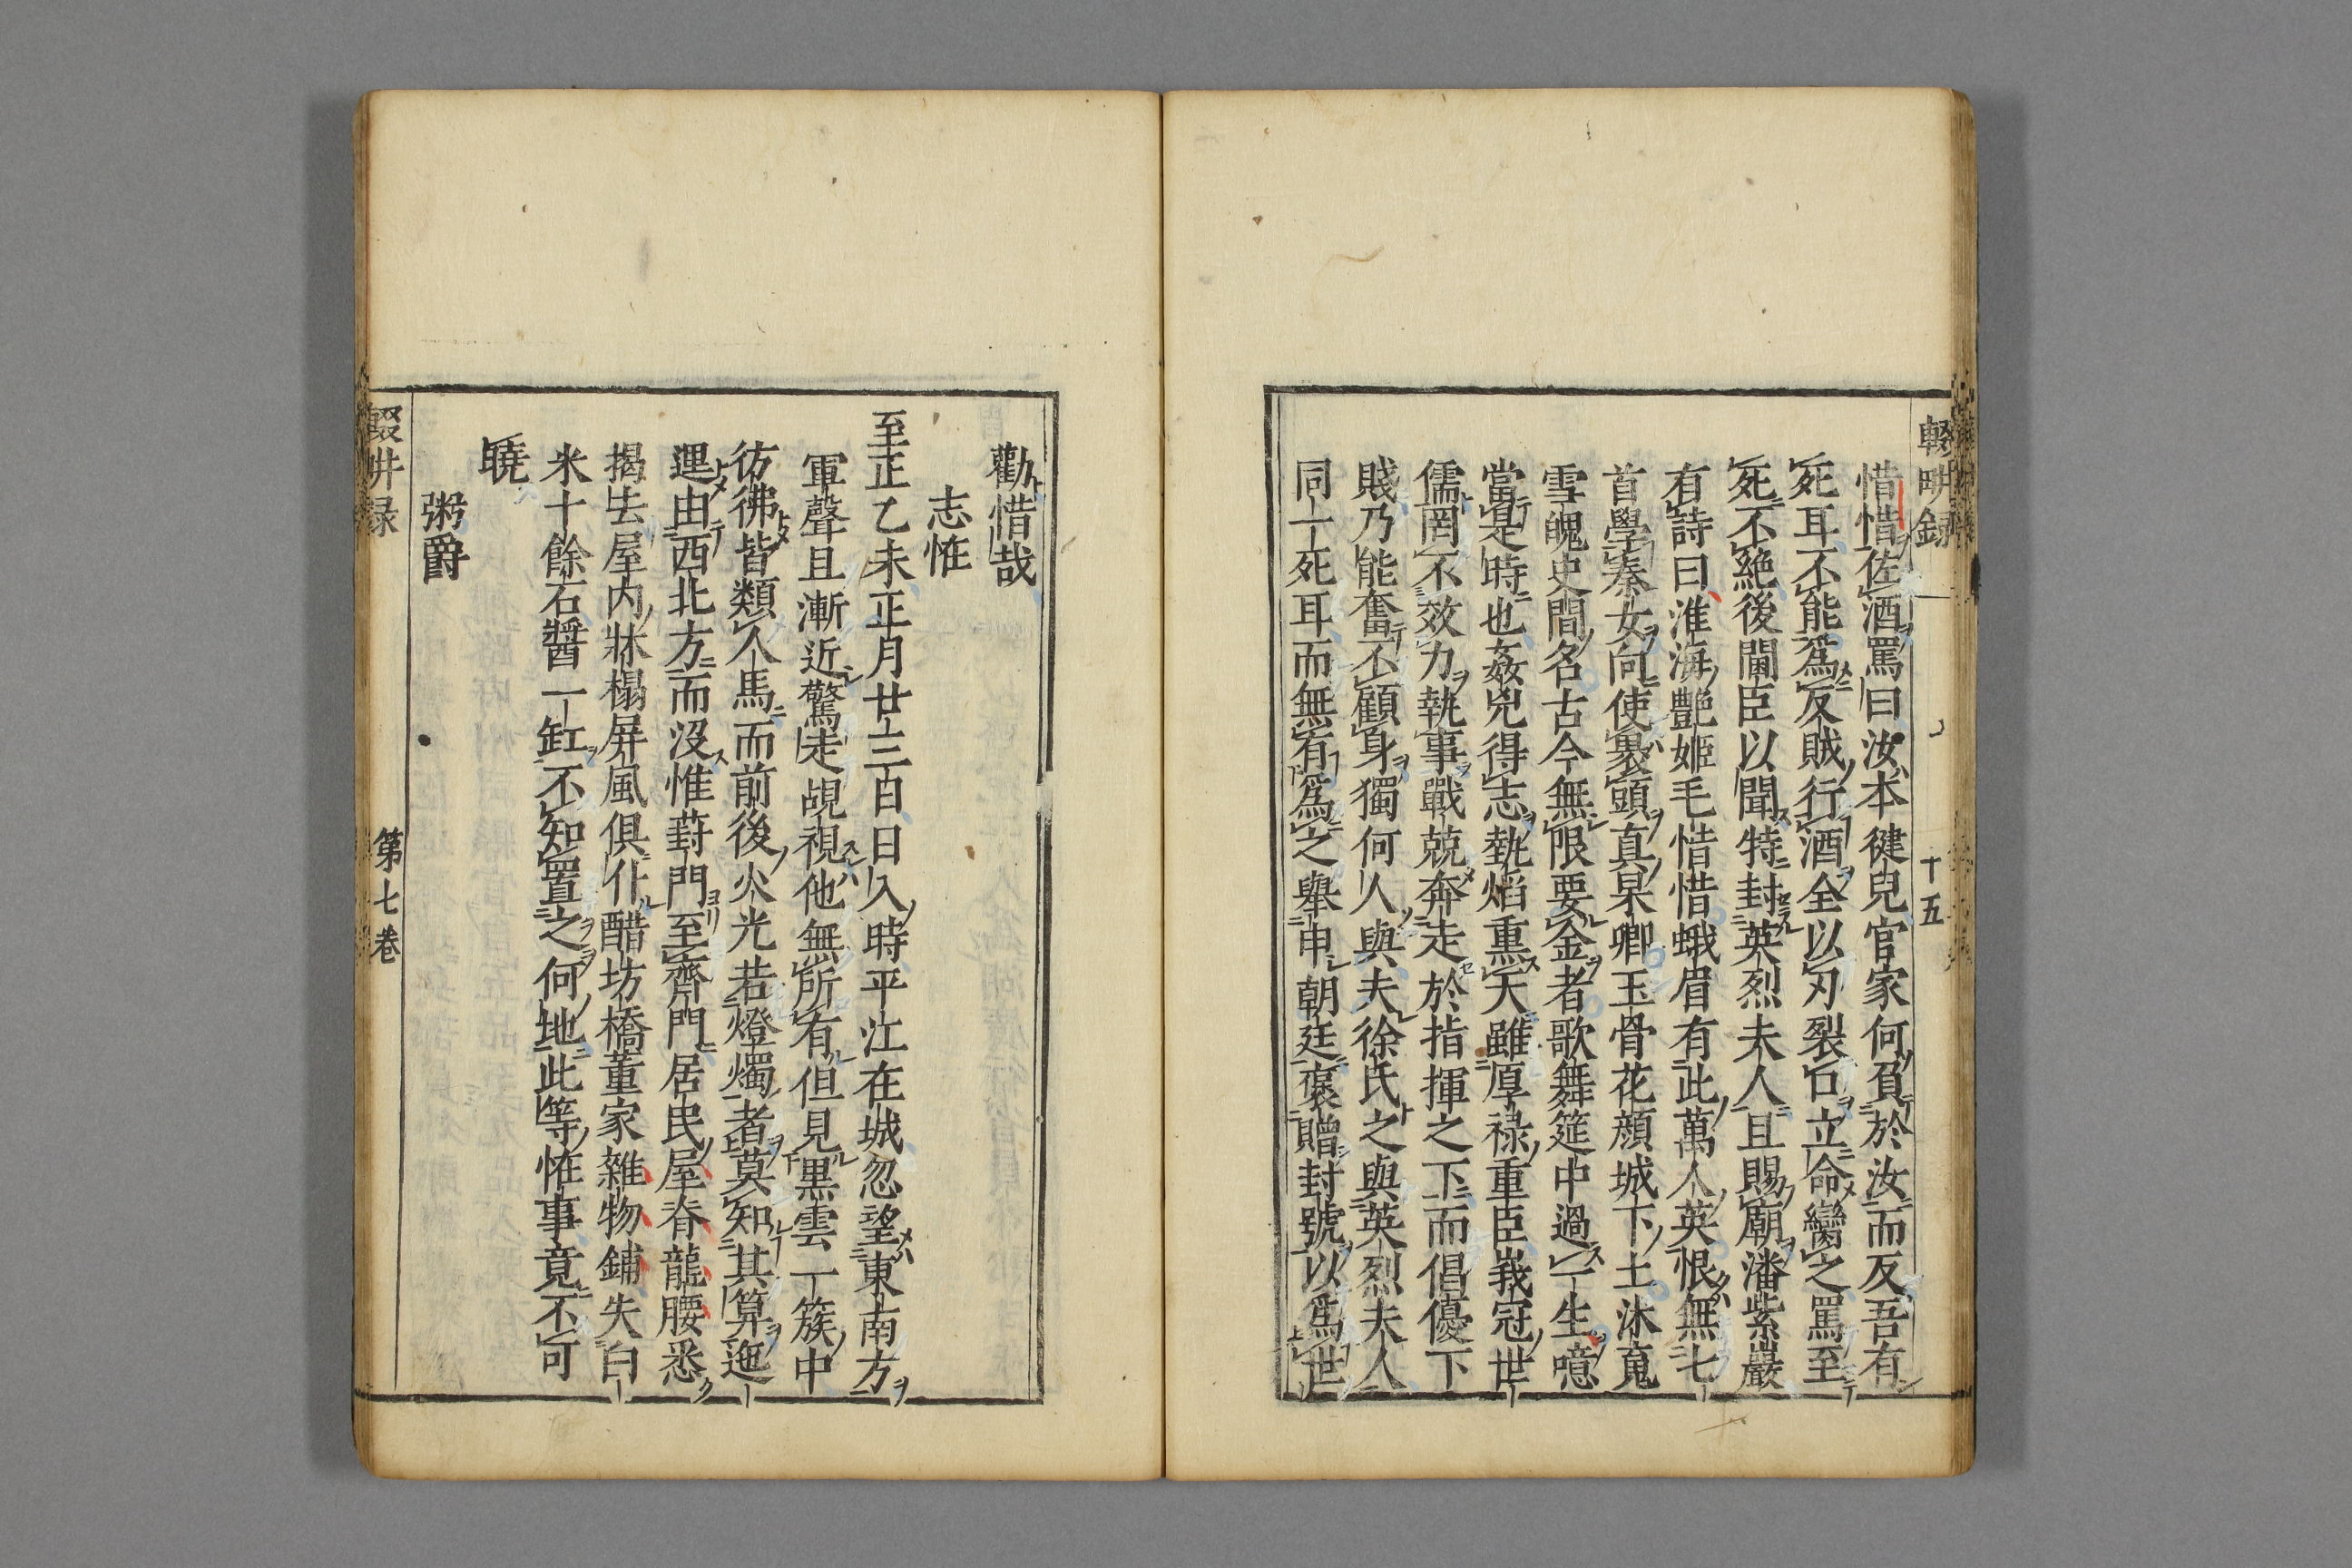 輟畊録
十五
惜惜佐酒罵曰汝本健兒官家何負於汝而反吾有
死耳不能爲反賊行酒全以刃裂口立命臠之罵至
死不絶後閫臣以聞特封英烈夫人且賜廟潘紫巖
有詩曰淮海艷姬毛惜惜蛾眉有此萬人英恨無七
首學秦女向使裹頭真杲卿玉骨花顔城下土沐䰟
雪魄史間名古今無限要金者歌舞筵中過一生噫
當是時也姦兇得志埶焰熏天雖厚禄重臣峩冠世
儒罔不效力執事戰兢奔走於指揮之下而倡優下
賤乃能奮不顧身獨何人與夫徐氏之與英烈夫人
同一死耳而無有爲之舉申朝廷褒贈封號以爲世
勸惜哉
志恠
至正乙未正月廿三百日入時平江在城忽望東南方
軍聲且漸近驚走覘視他無所有但見黒雲一簇中
彷彿皆類人馬而前後火光若燈燭者莫知其算迤
邐由西北方而没惟葑門至齊門居民屋脊龍腰悉
揭去屋内牀榻屏風俱仆醋坊橋董家雜物鋪失白
米十餘石醬一缸不知置之何地此等恠事竟不可
暁
粥爵
輟畊録
第七巻